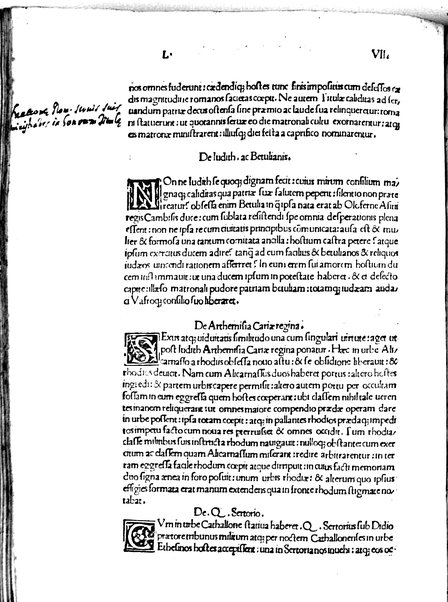 L. VII.
nos omnes fuderunt: cædendiq; hostes tunc finis impositus cum defessos cæ
dis magnitudine romanos sacietas cœpit. Ne autem Titulæ caliditas ad ser,
uandum patriæ decus ostensa sine præmio ac laude sua relinqueretur: roma
ni statuerunt: ut quotannis seruæ eo die matronali cultu exornarentur: atq;
es matronæ ministrarent: illusq; diei festa a caprifico nominarentur.
De Iudith. ac Betulianis.
NOn ne Iudith se quoq; dignam fecit: cuius mirum consilium ma,
gnaq; caliditas qua patriæ suæ salutem peperit: silentio non præte
reatur? obsessa enim Betulia in q̃ ipsa nata erat ab Oloferne Asirii
regis Cambisis duce: cum sublata resistendi spe omnia desperationis plena
essent: non ne ipsa re cum ciuitatis principibus cõmunicata: ausa est & mu
lier & formosa una tantum comitata ancilla: hostium castra petere? atque
ipsum exercitus ducem adire? tanq̃ ad cum facilius & betulianos & reliquos
iudæos uincendi rationem afferret? In eum enim sui amorem hostium du
cem ut ipsum in potestate haberet. & ei defecto
capite: illæso matronali pudore patriam betuliam: totamq; iudæam auda,
ci Vafroq; consilio suo liberaret.
De Arthemisia Cariæ regina.
SExus atq; uiduitatis similitudo una cum singulari uirtute: aget ut
post Iudith Arthemisia Cariæ regina ponatur. Hæc in urbe Ali,
carnasso a rhodiis obsessa nouo astu: & se obsidione liberauit: &
rhodios deuicit. Nam cum Alicarnassus duos haberet portus: altero hostes
ingredi: & partem urbis capere permisit: altero autem portu per occultam
fossam in eum egressa quem hostes cœperant: ubi classem nihil tale ueren
tes inanem reliquerant: ut omnes maiore compendio prædæ operam dare
in urbe possent: ipsa totam cœpit: atq; in pallantes rhodios prædæq; impedi
tos impetu facto cum noua res perterruisset & omnes occidit. Tum rhodia,
classe militibus suis instructa rhodum nauigauit: nulloq; obstante: cum exer
citum ac classem quam Alicarnassum miserant: redire arbitrarentur: in ter
ram egressa facile rhodum cœpit atque diripuit: in cuius facti memoriam
duo signa ænea in foro posuit: unum urbis rhodiæ: & alterum quo ipsius
effigies formata erat manum extendens qua in fronte rhodum stigmate no
tabat.
De. Q. Sertorio.
CVm in urbe Cathallone statiua haberet. Q. Sertorius sub Didio
prætore tribunus militum atq; per noctem Cathallonenses in urbe
Ethesinos hostes accepissent: una in Sertorianos inuehi: atq; eos oc,